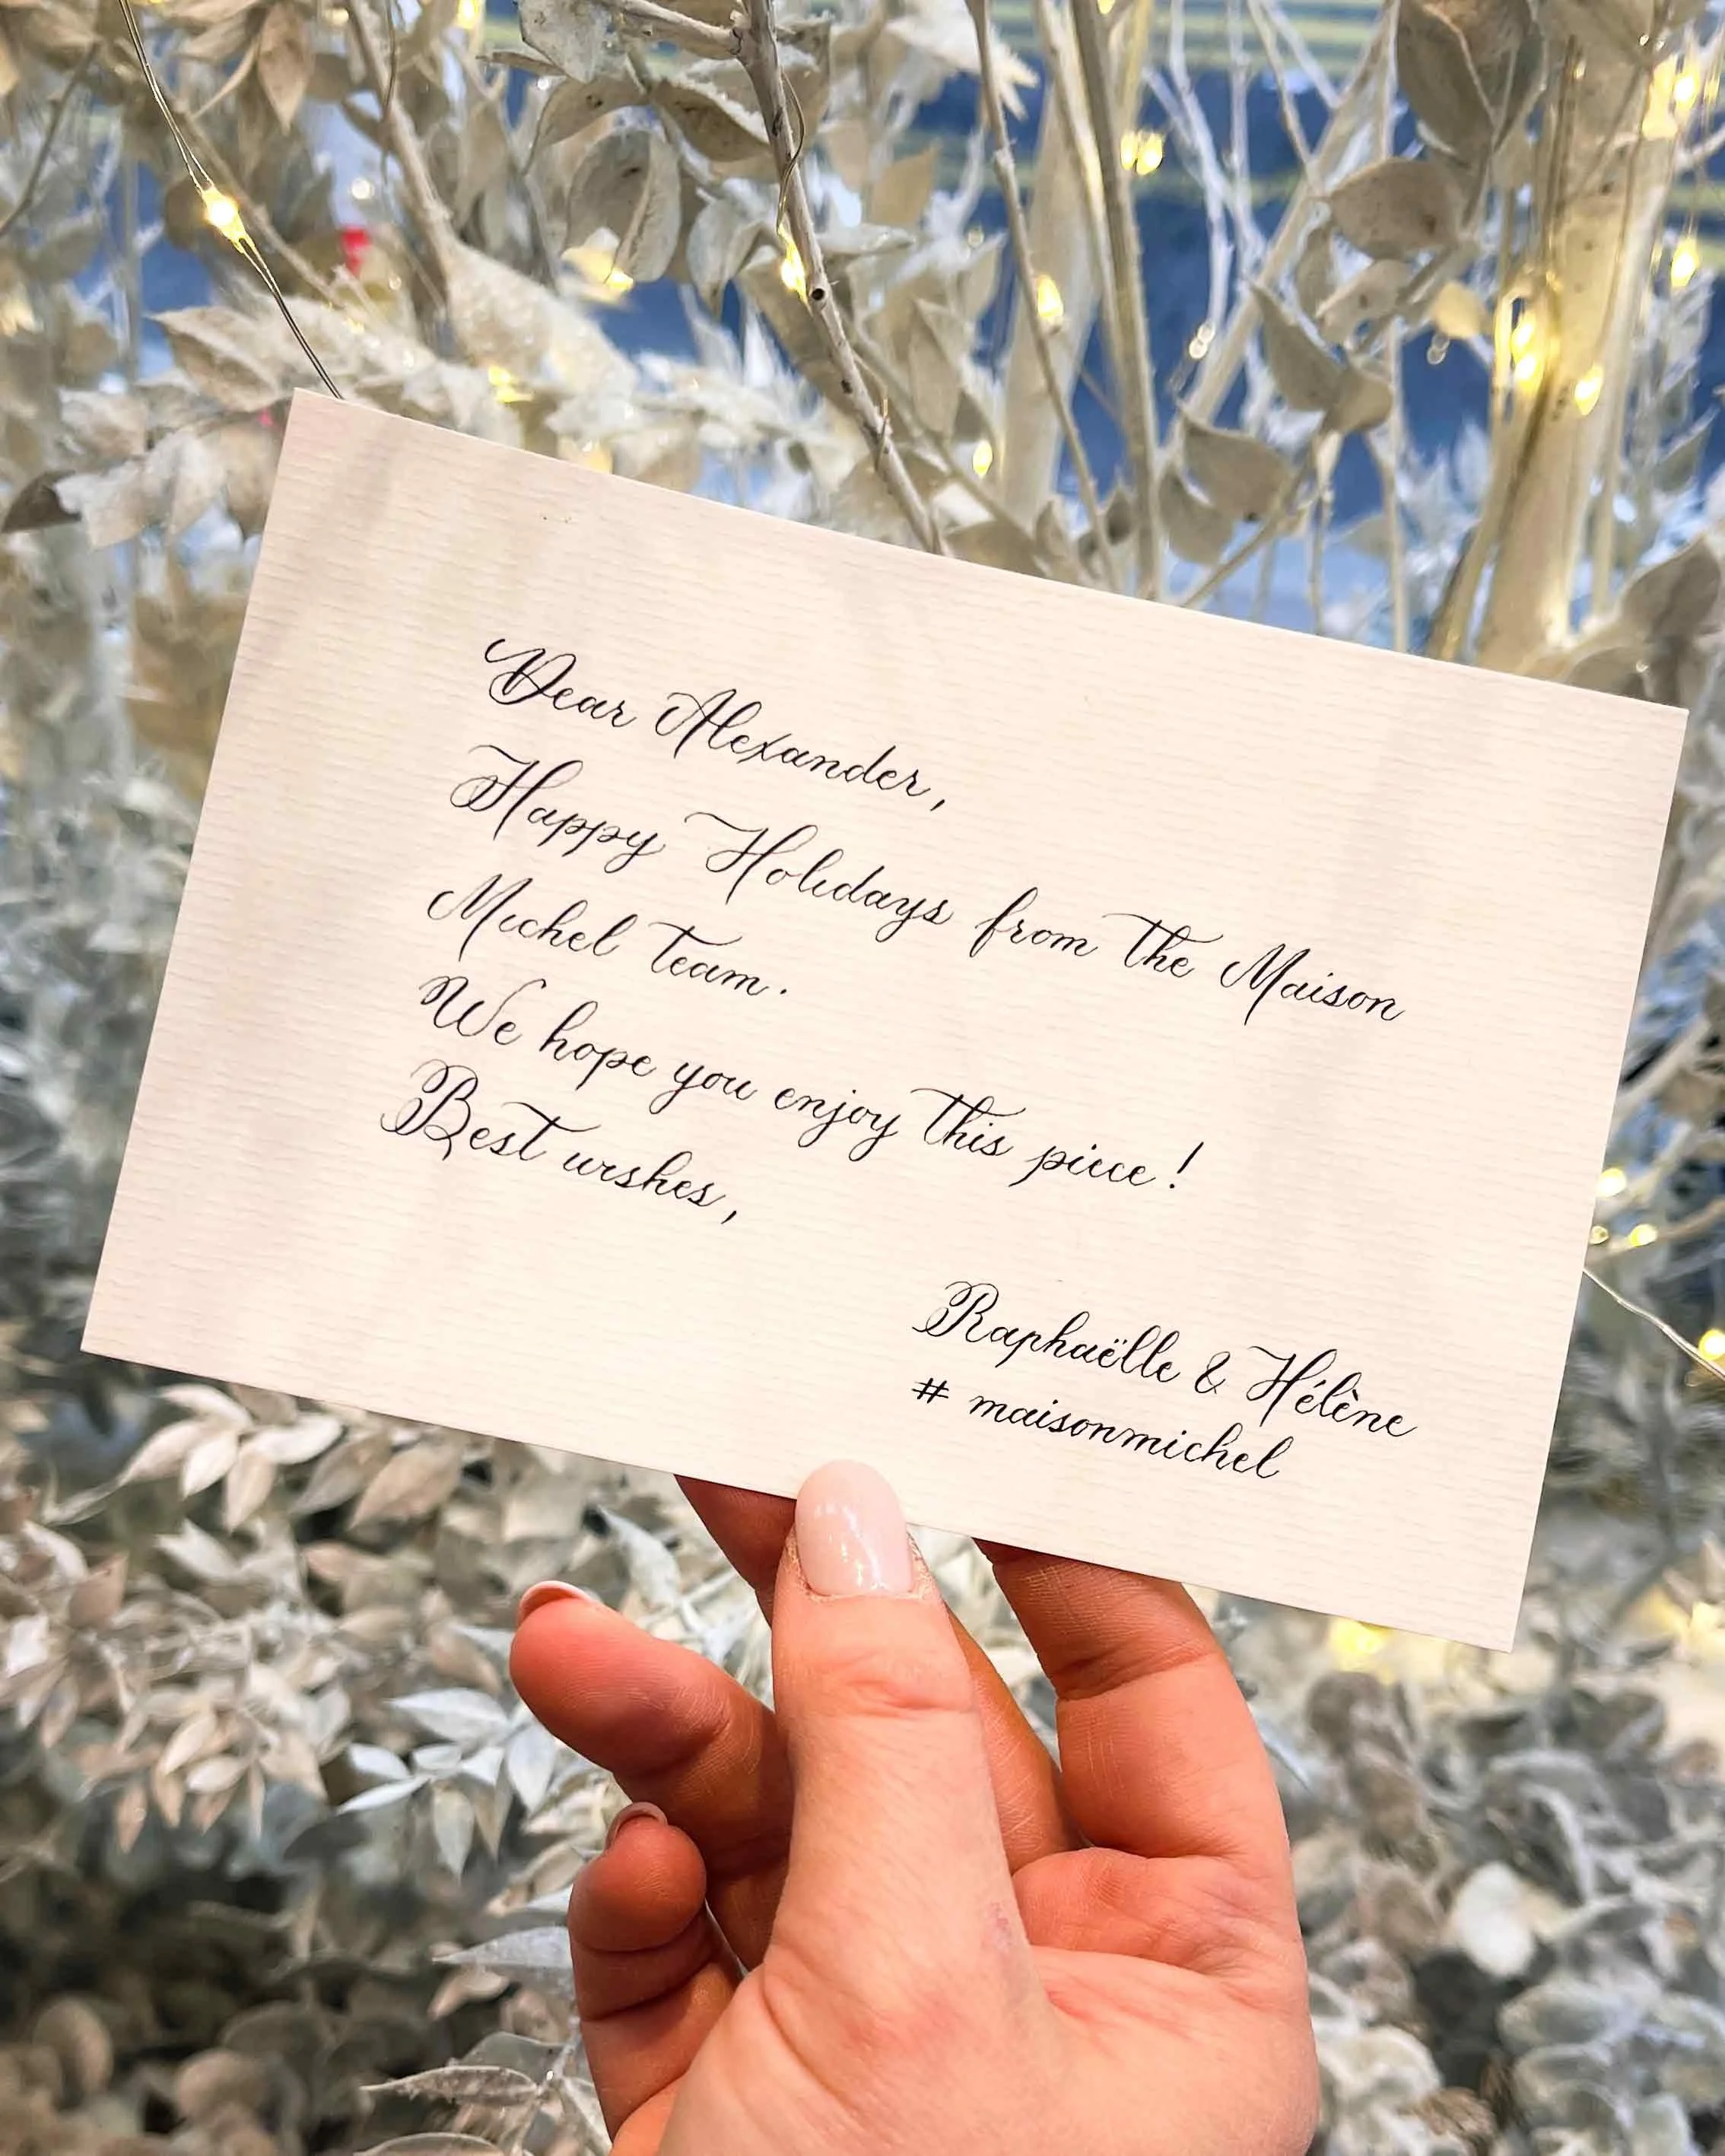 Dear Alexander,
Happy Holidays from the Maison
Michel team.
We hope you enjoy this piece!
Best wishes,
Raphaëlle & Hélène
# maisonmichel